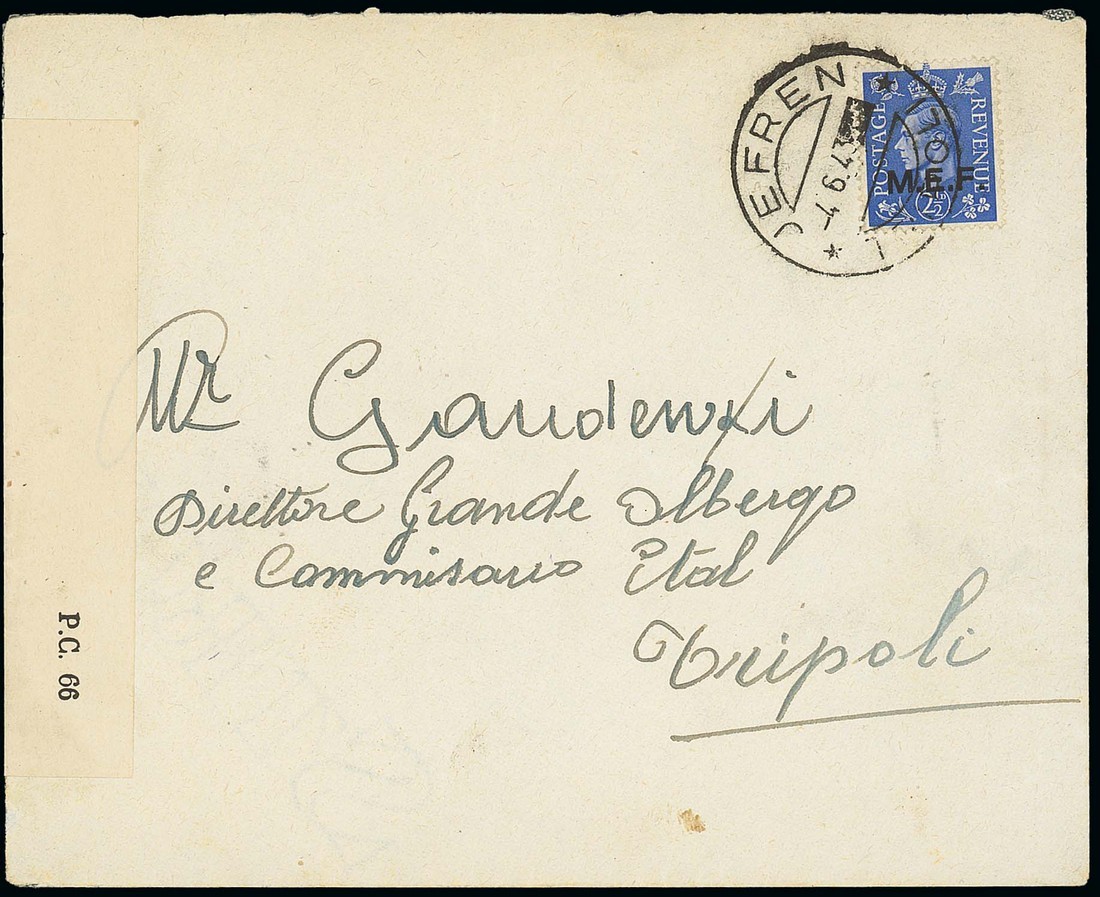 JEFREN * TRIPOLI *
7 9 43
POSTAGE REVENUE
M.E.F.
2½D
Mr Gaudenzi
Direttore Grande Albergo
e Commisario Ital
Tripoli
P.C. 66